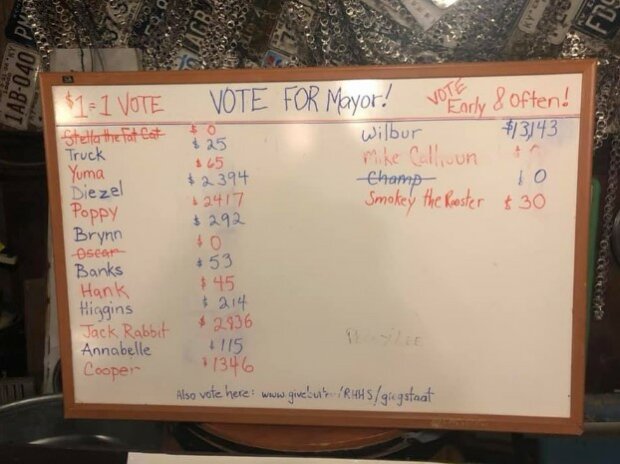 $1=1 VOTE
VOTE FOR Mayor!
VOTE
Early & Often!
Stella the Fat Cat $ 0
Truck $ 25
Yuma $ 65
Diezel $ 2394
Poppy $ 2417
Brynn $ 292
Oscar $ 0
Banks $ 53
Hank $ 45
Higgins $ 214
Jack Rabbit $ 2936
Annabelle $ 115
Cooper $ 1346
Wilbur $13,143
Mike Calhoun $ 0
Champ $ 0
Smokey the Rooster $ 30
Also vote here: /RHHS/
1AB-040